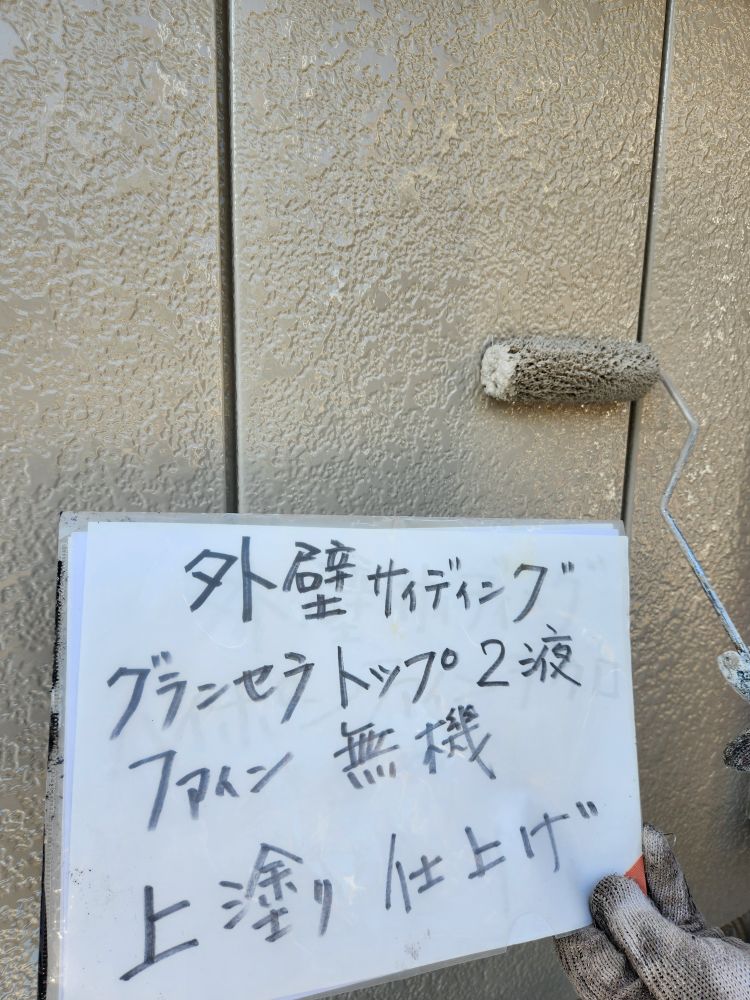 外壁サイディング
グランセラトップ2液
ファイン 無機
上塗り 仕上げ